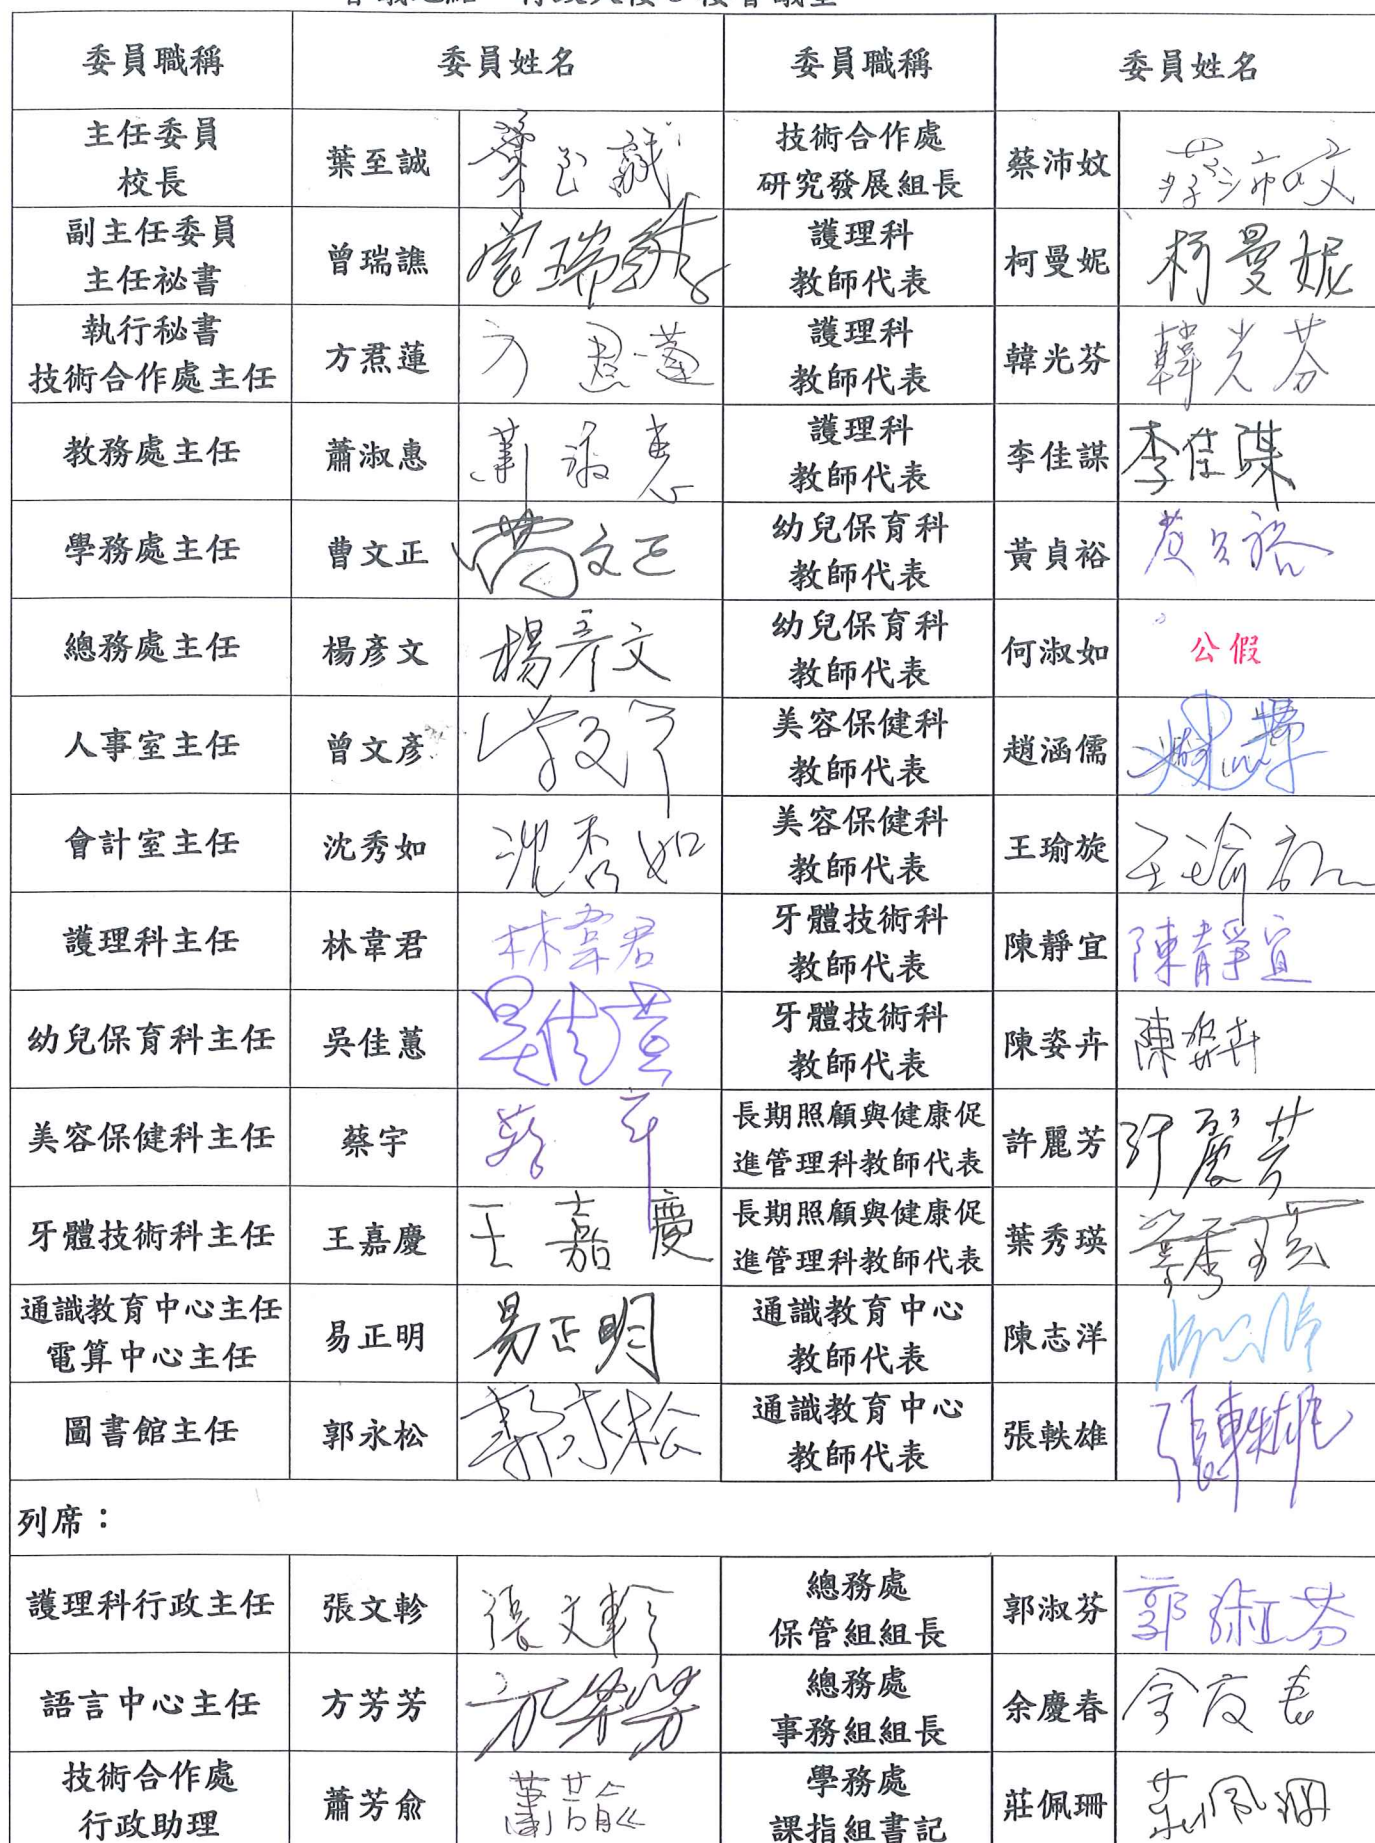 委員職稱 委員姓名 委員職稱 委員姓名
主任委員 校長 葉至誠 葉至誠 技術合作處 研究發展組長 蔡沛妏 蔡沛妏
副主任委員 主任祕書 曾瑞譙 曾瑞譙 護理科 教師代表 柯曼妮 柯曼妮
執行秘書 技術合作處主任 方焄蓮 方焄蓮 護理科 教師代表 韓光芬 韓光芬
教務處主任 蕭淑惠 蕭淑惠 護理科 教師代表 李佳謀 李佳謀
學務處主任 曹文正 曹文正 幼兒保育科 教師代表 黃貞裕 黃貞裕
總務處主任 楊彥文 楊彥文 幼兒保育科 教師代表 何淑如 公假
人事室主任 曾文彥 曾文彥 美容保健科 教師代表 趙涵儒
會計室主任 沈秀如 沈秀如 美容保健科 教師代表 王瑜旋 王瑜旋
護理科主任 林韋君 林韋君 牙體技術科 教師代表 陳靜宜 陳靜宜
幼兒保育科主任 吳佳蕙 吳佳蕙 牙體技術科 教師代表 陳姿卉 陳姿卉
美容保健科主任 蔡宇 蔡宇 長期照顧與健康促 進管理科教師代表 許麗芳 許麗芳
牙體技術科主任 王嘉慶 王嘉慶 長期照顧與健康促 進管理科教師代表 葉秀瑛 葉秀瑛
通識教育中心主任 電算中心主任 易正明 易正明 通識教育中心 教師代表 陳志洋
圖書館主任 郭永松 郭永松 通識教育中心 教師代表 張軼雄 張軼雄
列席：
護理科行政主任 張文軫 張文軫 總務處 保管組組長 郭淑芬 郭淑芬
語言中心主任 方芳芳 方芳芳 總務處 事務組組長 余慶春 余慶春
技術合作處 行政助理 蕭芳俞 蕭芳俞 學務處 課指組書記 莊佩珊 莊佩珊